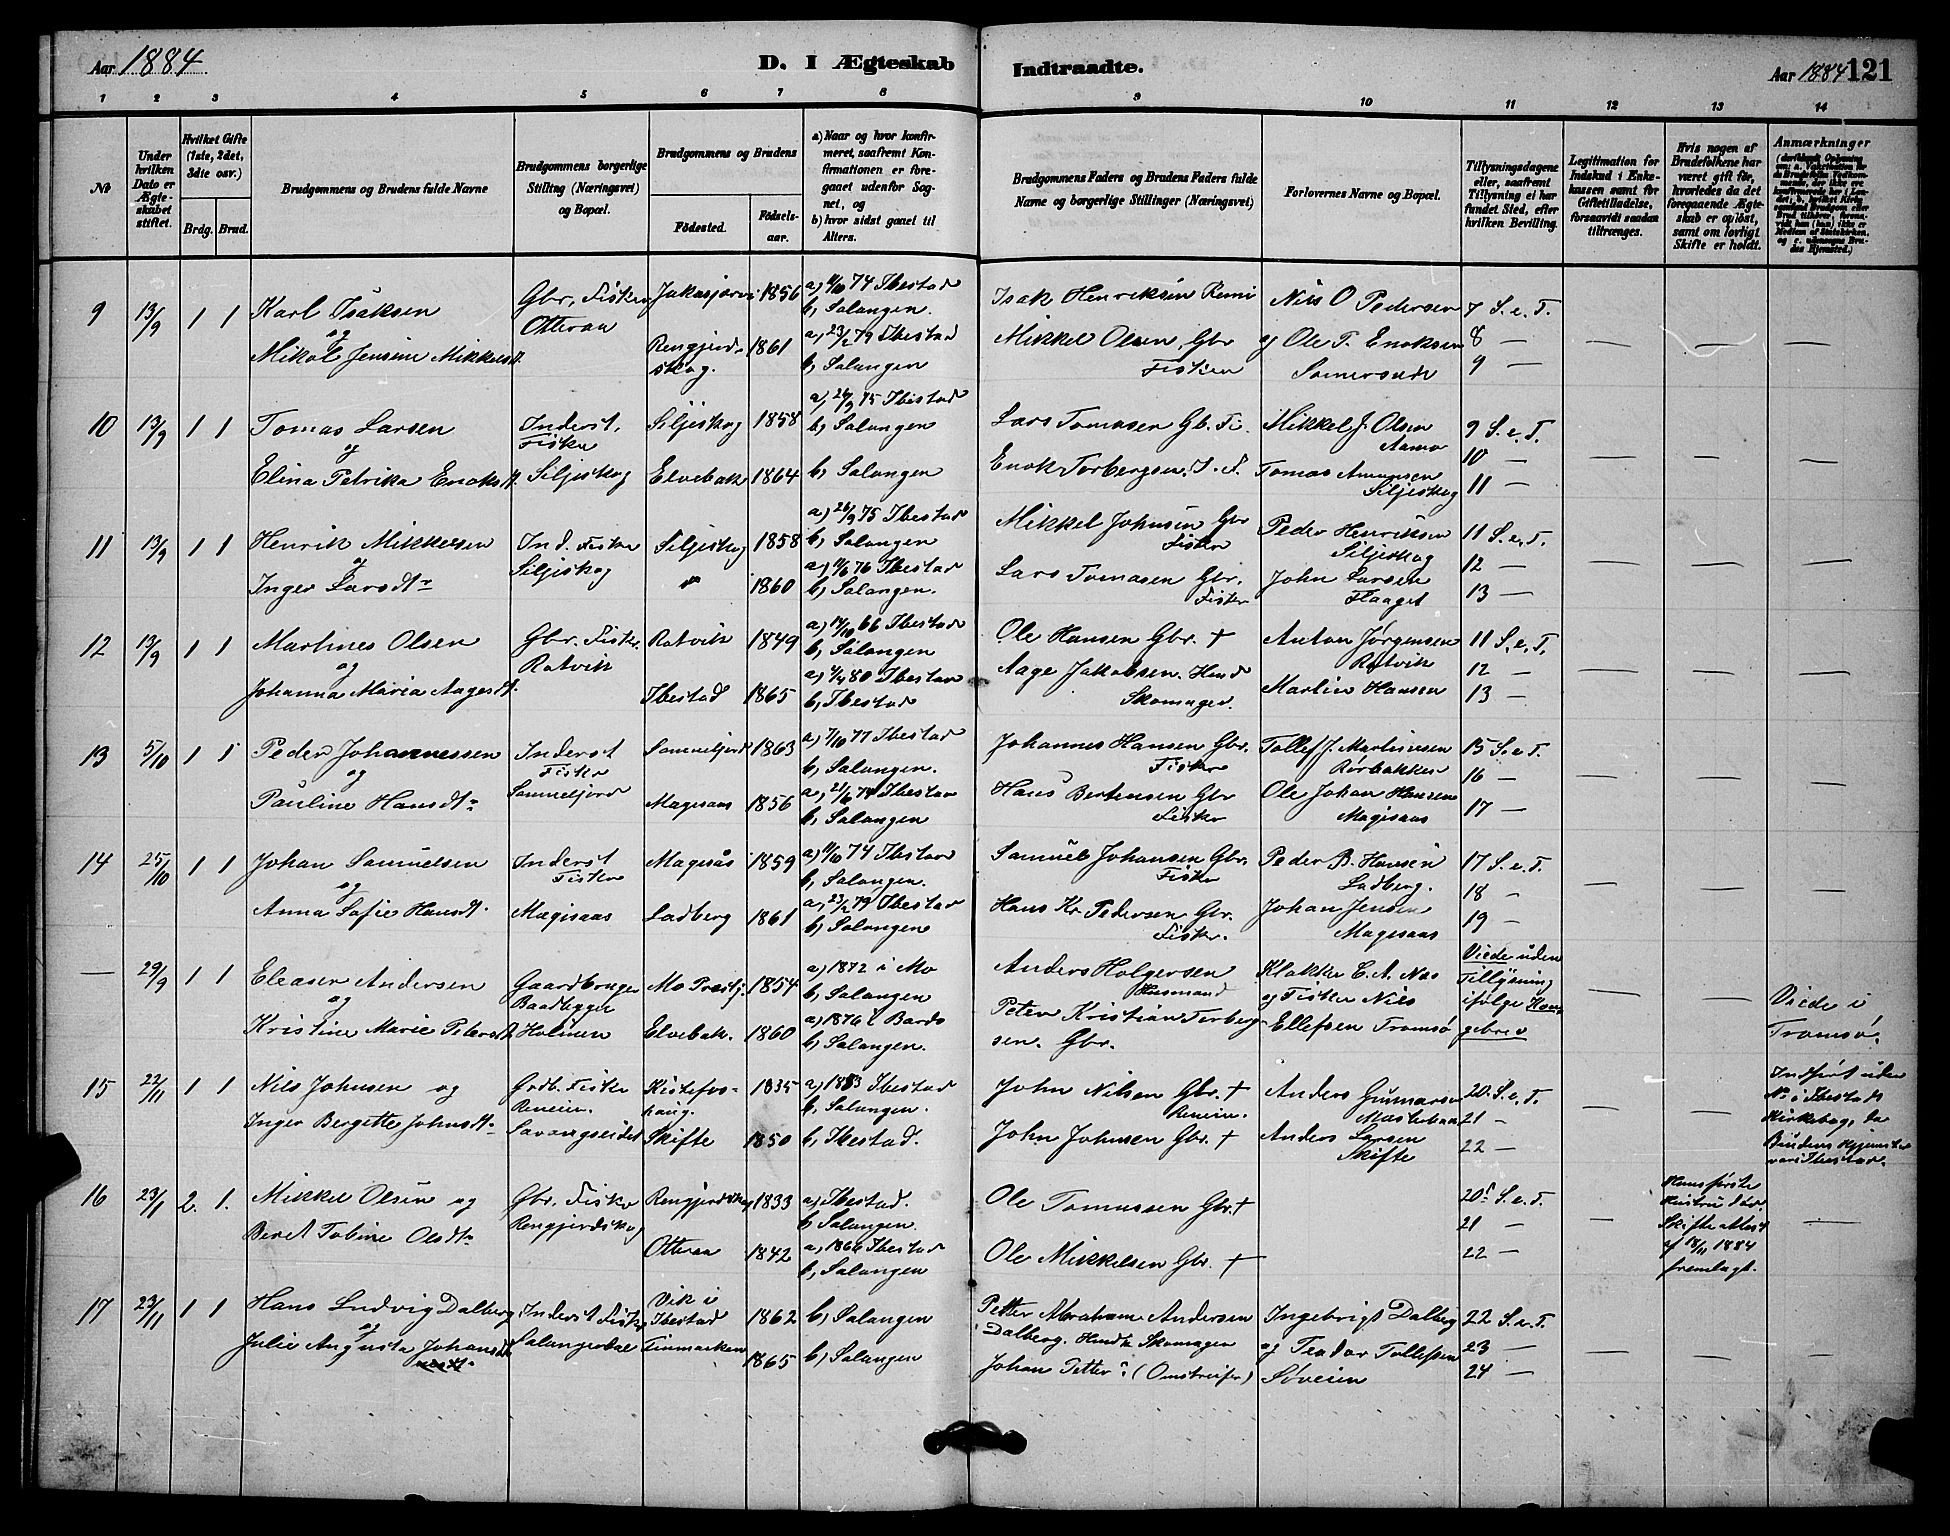 Aar 1884
D. I Ægteskab Indtraadte.
Aar 1884 121
1 2 3 4 5 6 7 8 9 10 11 12 13 14
No
Under hvilken Dato er Ægteskabet stiftet.
Hvilket Gifte (1ste, 2det, 3die osv.)
Brdg. Brud.
Brudgommens og Brudens fulde Navne
Brudgommens borgerlige Stilling (Næringsvei) og Bopæl.
Brudgommens og Brudens
Fødested. Fødselsaar.
a) Naar og hvor konfirmeret, saafremt Konfirmationen er foregaaet udenfor Sognet, og
b) hvor sidst gaaet til Alters.
Brudgommens Faders og Brudens Faders fulde Navne og borgerlige Stillinger (Næringsvei)
Forlovernes Navne og Bopæl.
Tillysningsdagene eller, saafremt Tillysning ei har fundet Sted, efter hvilken Bevilling.
Legitimation for Indskud i Enkekassen samt for Giftetilladelse, forsaavidt saadan tiltrænges.
Hvis nogen af Brudefolkene har været gift før, hvorledes da det foregaaende Ægteskab er opløst, samt om lovligt Skifte er holdt.
Anmærkninger
9 13/9 1 1 Karl Isaksen og Mikol Jensine Mikkelsd.
Gbr. Fisker Otteraa
1856 Rengjerdskog. 1861
a) 11/10 74 Ibestad b, Salangen.
a, 23/2 79 Ibestad b, Salangen
Isak Henriksen Mikkel Olsen Gbr Fisker
Nils O Pedersen og Ole P. Enoksen
7 S.e.T. 8 — 9 — — — —
10 13/9 1 1 Tomas Larsen og Elina Petrika Enoksd.
Inderst, Fisker Siljeskog
Siljeskog 1858 Elvebak 1864
a, 26/9 75 Ibestad b, Salangen
b, Salangen
Lars Tomasen Gb. Fi. Enok Torbergsen. I. F.
Mikkel J. Olsen Tomas Amunsen Siljeskog
9 S.e.T. 10 — 11 — — — —
11 13/9 1 1 Henrik Mikkelsen og Inger Larsdtr
Ind. Fisker Siljeskog
Siljeskog 1858 " 1860
a) 26/9 75 Ibestad b, Salangen
a) 11/6 76 Ibestad b, Salangen.
Mikkel Johnsen Gbr Fisker Lars Tomasen Gbr. Fisker
Peder Henriksen Siljeskog John Larsen Flaaget
11 S.e.T. 12 — 13 — — — —
12 13/9 1 1 Martines Olsen og Johanna Maria Aagesd.
Gbr. Fisker. Rotvik
Rotvik 1849 Ibestad 1865
a) 14/10 66 Ibestad b, Salangen
a) 4/4 80 Ibestad b, Ibestad
Ole Hansen Gbr. † Aage Jakobsen. Hmd Skomager.
Anton Jørgensen Rotvik Martin Hansen
11 S.e.T. 12 — 13 — — — —
13 5/10 1 1 Peder Johannessen og Pauline Hansdtr
Inderst Fisker
1863 Magesaas 1856
a) 7/10 77 Ibestad b, Salangen.
a, 21/6 74 Ibestad b, Salangen
Johannes Hansen Gbr. Fisker Hans Berteusen Gbr Fisker
Tollef J. Martinesen Rørbakken Ole Johan Hansen Magisaas
15 S.e.T. 16 — 17 — — — —
14 25/10 1 1 Johan Samuelsen og Anna Sofie Hansdt.
Inderst Fisker Magisaas
Magesås 1859 Ladberg 1861
a) 11/10 74 Ibestad b, Salangen.
a, 23/2 79 Ibestad b, Salangen
Samuel Johansen Gbr. Fisker Hans Kr Pedersen Gbr. Fisker.
Peder B. Hansen Ladberg. Johan Jensen Magesaas
17 S.e.T. 18 — 19 — — — —
— 29/9 1 1 Eleaser Andersen og Kristine Marie Petersd.
Gaardbruger Baadbygger Holmen
Mo Præstgj. 1854 Elvebak. 1860
a) 1872 i Mo b, Salangen
a) 1876 i Bardo b, Salangen.
Anders Holgersen Husmand Peter Kristian Torbergsen. Gbr.
Klokker C. A. Nas og Fisker Nils Ellefsen Tromsø
Viede uden Tillysning ifølge Kongebrev — —
Viede i Tromsø.
15 22/11 1 1 Nils Johnsen og Inger Bergitte Johnsdtr
Grdb. Fisker Reneier. Savangseidet
1835 Skifte 1850
a) 1853 Ibestad b, Salangen.
b, Ibestad.
John Nilsen Gbr. † Reneier. John Johnsen Gbr. †
Anders Gunnarsen Anders Larsen Skifte
20. S.e.T 21 — 22 — — —
Indført uden No i Ibestads Kirkebog, da Brudens Hjemsted var i Ibestad.
16 23/11 2. 1. Mikkel Olsen og Beret Tobine Olsdtr
Gbr. Fisker Rengjerdskog
Rengjerdskog 1833 Otteraa 1842
a) Ibestad. b Salangen.
a, 1866 Ibestad b, Salangen
Ole Tomassen Gbr. † Ole Mikkelsen Gbr. †
20 S.e.T. 21 — 22 — —
Hans første Hustru død. Skifteattest af 18/11 1884 fremlagt. —
17 23/11 1 1 Hans Ludvig Dalberg og Julie Augusta Johansdt
Inderst Fisker Salangerdal
Vik i Ibestad 1862 Finmarken 1865
b, Salangen
b, Salangen
Petter Abraham Andersen Dalberg. Skomager Johan Petter (Omstreifer)
Ingebrigt Dalberg og Teodor Tollefsen Søveien
22 S.e.T. 23 — 24 — — — —